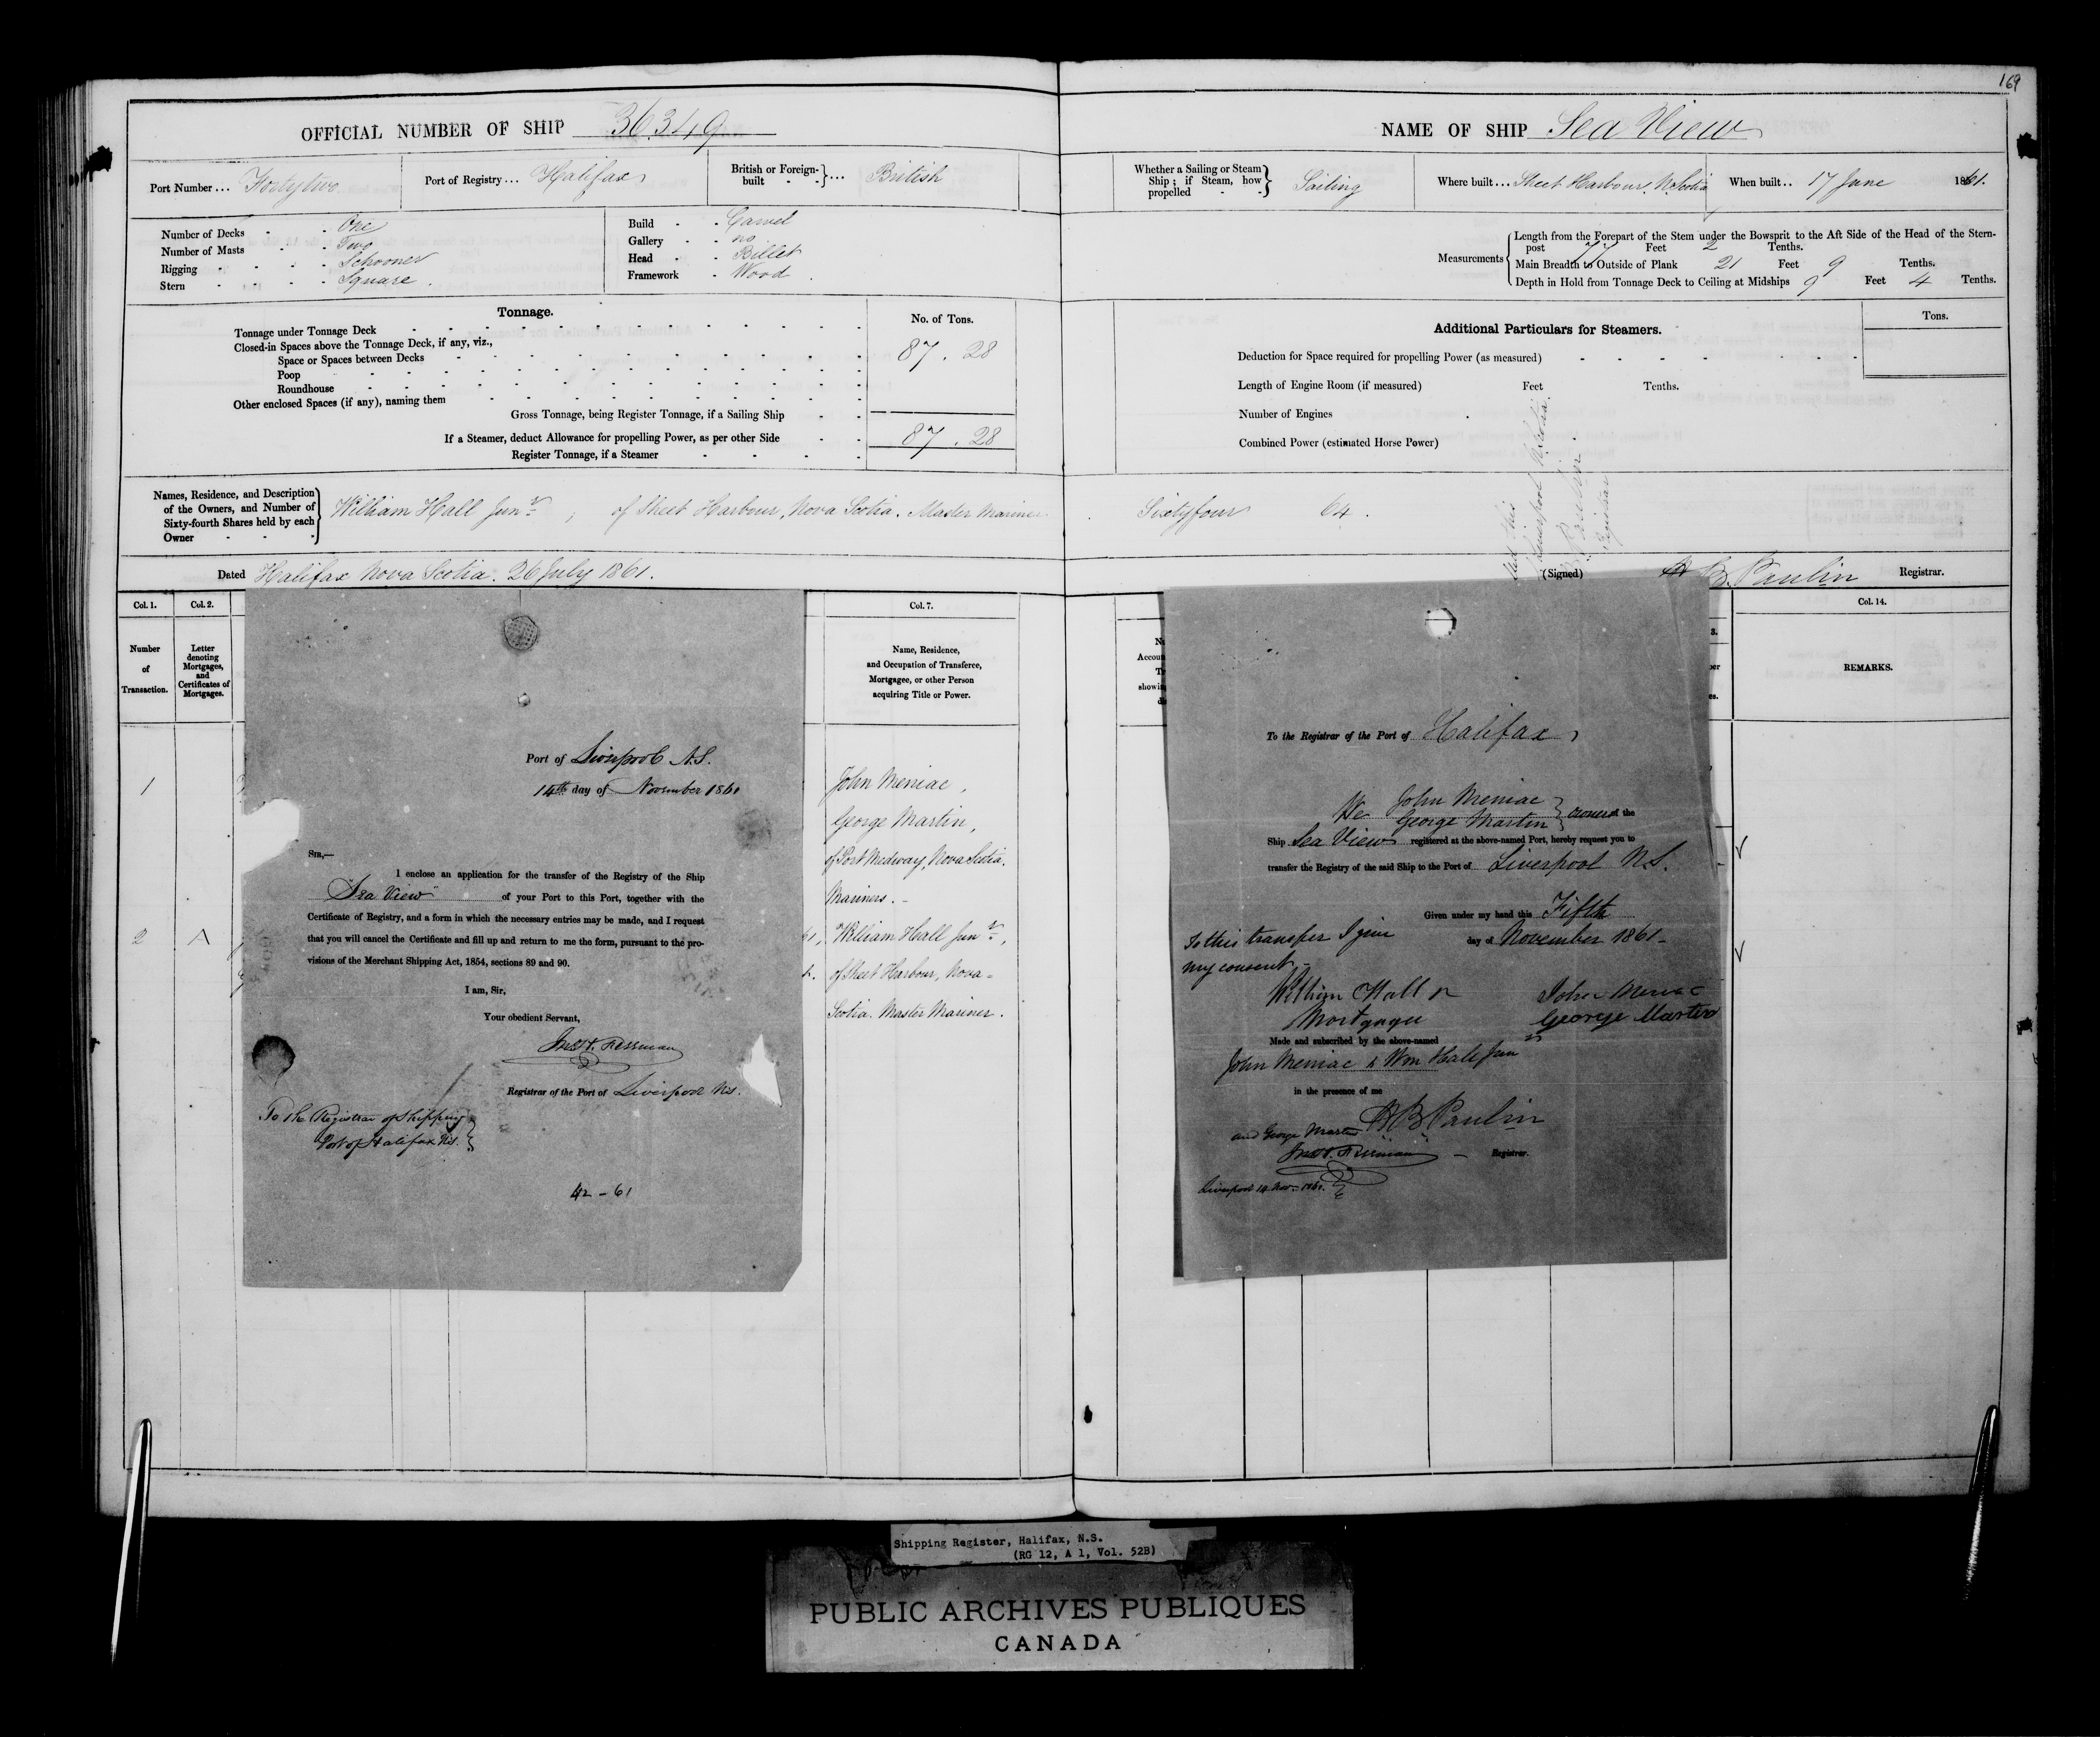 169
OFFICIAL NUMBER OF SHIP 36.349
NAME OF SHIP Sea View
Port Number ... Fortytwo
Port of Registry ... Halifax
British or Foreign-built ... British
Whether a Sailing or Steam Ship; if Steam, how propelled Sailing
Where built ... Sheet Harbour, N. Scotia
When built .. 17 June 1861.
Number of Decks - - One
Number of Masts - - Two
Rigging - - - - Schooner
Stern - - - - Square.
Build - - Carvel
Gallery - - no
Head - - Billet
Framework - Wood.
Measurements
Length from the Forepart of the Stem under the Bowsprit to the Aft Side of the Head of the Stern-
post 77 Feet 2 Tenths.
Main Breadth to Outside of Plank 21 Feet 9 Tenths.
Depth in Hold from Tonnage Deck to Ceiling at Midships 9 Feet 4 Tenths.
Tonnage.
No. of Tons.
Tonnage under Tonnage Deck
Closed-in Spaces above the Tonnage Deck, if any, viz.,
Space or Spaces between Decks 87.28
Poop
Roundhouse
Other enclosed Spaces (if any), naming them
Gross Tonnage, being Register Tonnage, if a Sailing Ship
If a Steamer, deduct Allowance for propelling Power, as per other Side 87.28
Register Tonnage, if a Steamer
Additional Particulars for Steamers.
Tons.
Deduction for Space required for propelling Power (as measured)
Length of Engine Room (if measured) Feet Tenths.
Number of Engines
Combined Power (estimated Horse Power)
Names, Residence, and Description
of the Owners, and Number of
Sixty-fourth Shares held by each
Owner
William Hall Junr; of Sheet Harbour, Nova Scotia. Master Mariner. Sixtyfour 64.
Dated Halifax Nova Scotia. 26 July 1861.
(Signed) H B. Paulin Registrar.
Col. 1.
Number
of
Transaction.
Col. 2.
Letter
denoting
Mortgages,
and
Certificates of
Mortgages.
Col. 7.
Name, Residence,
and Occupation of Transferee,
Mortgagee, or other Person
acquiring Title or Power.
Col. 14.
REMARKS.
1
John Meniac,
George Martin,
of Port Medway, Nova Scotia.
Mariners.
2 A
William Hall Junr,
of Sheet Harbour, Nova-
Scotia. Master Mariner.
Port of Liverpool N.S.
14th day of November 1861
SIR,—
I enclose an application for the transfer of the Registry of the Ship
"Sea View" of your Port to this Port, together with the
Certificate of Registry, and a form in which the necessary entries may be made, and I request
that you will cancel the Certificate and fill up and return to me the form, pursuant to the pro-
visions of the Merchant Shipping Act, 1854, sections 89 and 90.
I am, Sir,
Your obedient Servant,
Registrar of the Port of Liverpool N.S.
To The Registrar of Shipping
Port of Halifax N.S.
42 - 61
To the Registrar of the Port of Halifax
We John Meniac
George Martin owners of the
Ship Sea View registered at the above-named Port, hereby request you to
transfer the Registry of the said Ship to the Port of Liverpool N.S.
Given under my hand this Fifth
day of November 1861
To this transfer I give
my consent
William Hall Jr
Mortgagee
John Meniac
George Martin
Made and subscribed by the above-named
John Meniac & Wm Hall Junr
in the presence of me
H B Paulin
and George Martin
Registrar.
Liverpool 14 Nov. 1861.
Shipping Register, Halifax, N.S.
(RG 12, A 1, Vol. 52B)
PUBLIC ARCHIVES PUBLIQUES
CANADA